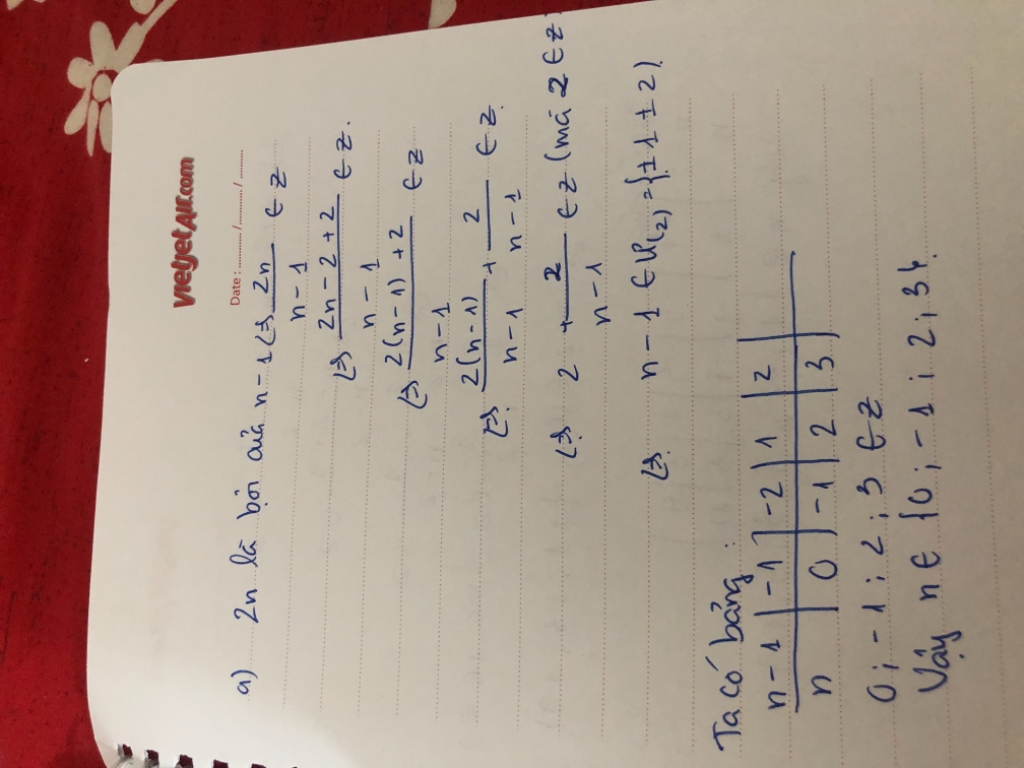 vietjetAir.com
Date : ........../........../..........
a) 2n là bội của n - 1 <=> 2n / n - 1 ∈ Z
<=> 2n - 2 + 2 / n - 1 ∈ Z.
<=> 2(n - 1) + 2 / n - 1 ∈ Z
<=> 2(n - 1) / n - 1 + 2 / n - 1 ∈ Z.
<=> 2 + 2 / n - 1 ∈ Z (mà 2 ∈ Z
<=> n - 1 ∈ Ư(2) = {±1 ±2}.
Ta có bảng :
n - 1 | -1 | -2 | 1 | 2 |
n | 0 | -1 | 2 | 3 |
0 ; -1 ; 2 ; 3 ∈ Z
Vậy n ∈ {0 ; -1 ; 2 ; 3}.